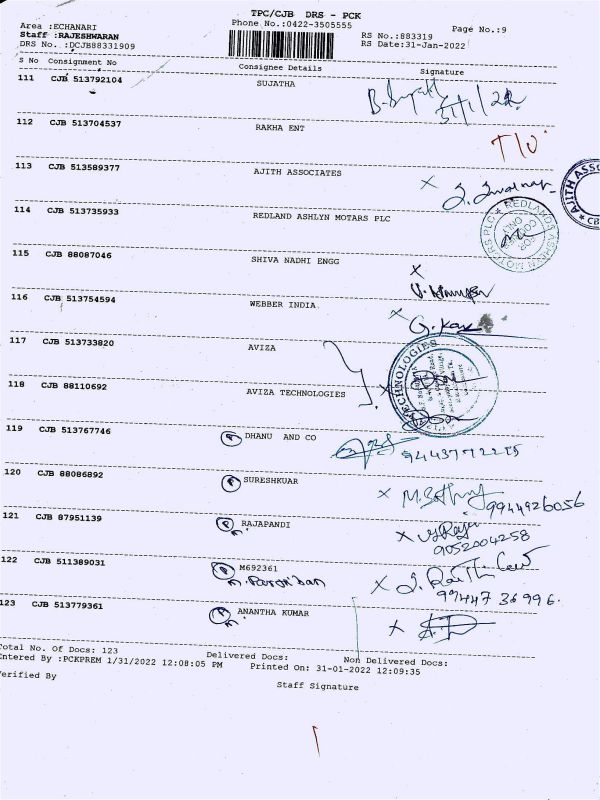 TPC/CJB DRS - PCK
Area :ECHANARI
Phone No.:0422-3505555
Page No.:9
Staff :RAJESHWARAN
RS No.:883319
DRS No.:DCJB88331909
RS Date:31-Jan-2022
S No Consignment No Consignee Details Signature
111 CJB 513792104 SUJATHA
31/1/22
112 CJB 513704537 RAKHA ENT
113 CJB 513589377 AJITH ASSOCIATES
AJITH ASSO
114 CJB 513735933 REDLAND ASHLYN MOTARS PLC
115 CJB 88087046 SHIVA NADHI ENGG
116 CJB 513754594 WEBBER INDIA
117 CJB 513733820 AVIZA
TECHNOLOGIES
118 CJB 88110692 AVIZA TECHNOLOGIES
119 CJB 513767746 P DHANU AND CO
120 CJB 88086892 P SURESHKUAR
9944926056
121 CJB 87951139 P RAJAPANDI
9052004258
122 CJB 511389031 P M692361
99447 36996.
123 CJB 513779361 P ANANTHA KUMAR
Total No. Of Docs: 123 Delivered Docs: Non Delivered Docs:
Entered By :PCKPREM 1/31/2022 12:08:05 PM Printed On: 31-01-2022 12:09:35
Verified By
Staff Signature